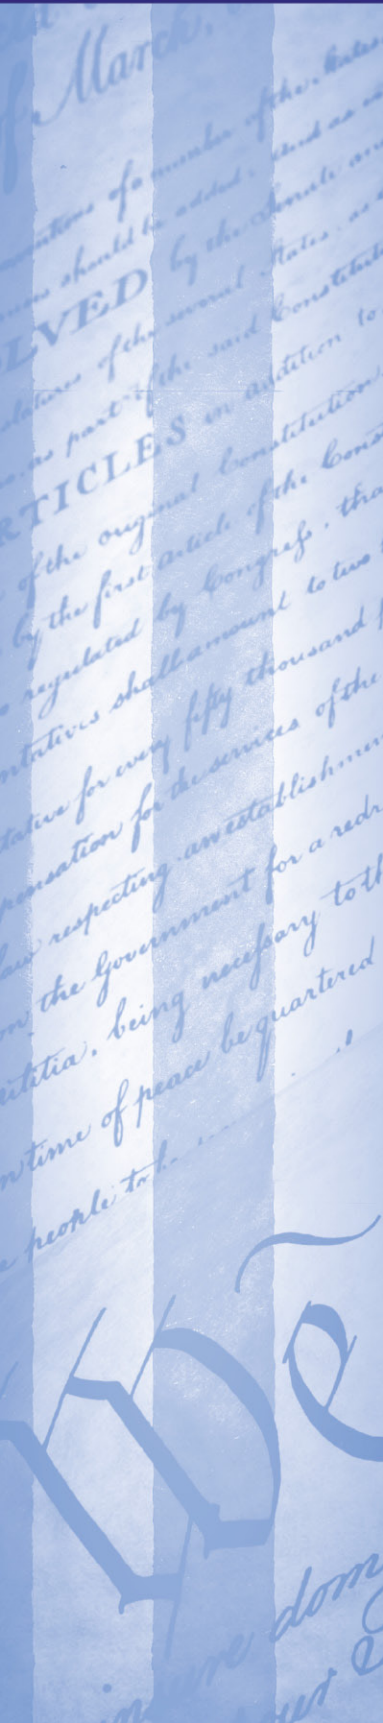 of March,
of a number of the States
should be added
OLVED by the Senate and
slatures of the several States, as
as part of the said Constitution
RTICLES in addition to
of the original Constitution
by the first article of the Cons
regulated by Congress, tha
ntatives shall amount to two
tative for every fifty thousand
pensation for the services of the
law respecting an establishmen
the Government for a redr
militia, being necessary to th
n time of peace be quartered
people to be
We
insure dom
our